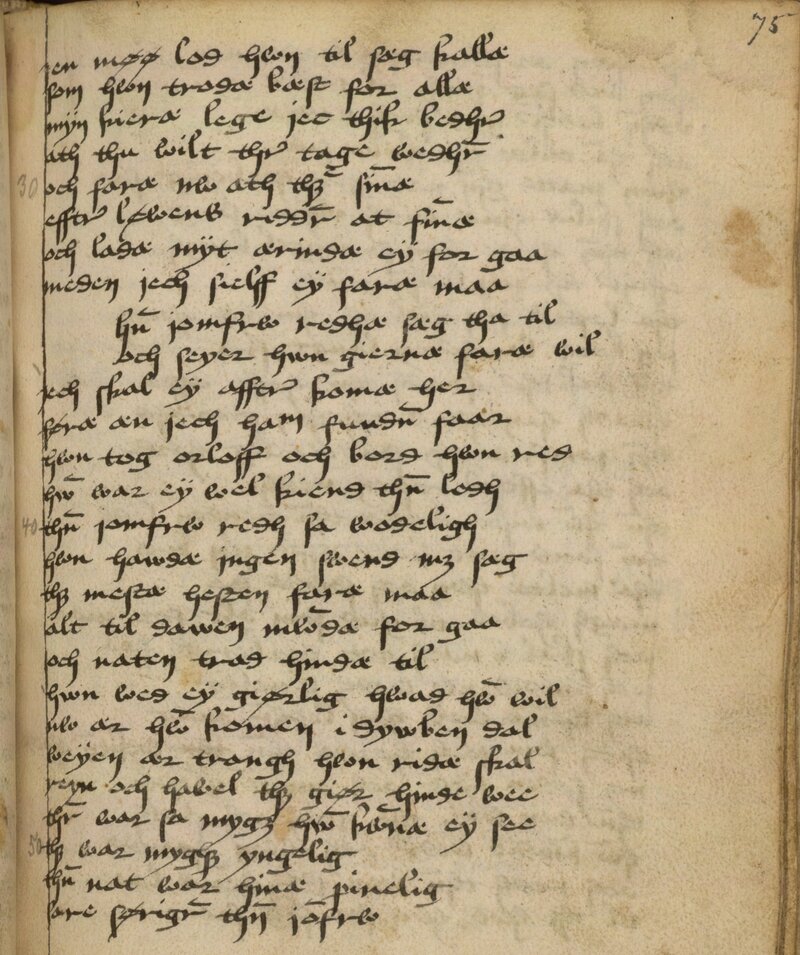 75
en møø lod hwon til sæg kallæ
som hwon trodæ bæst for allæ
myn kieræ lege jec thik bedhr̄
ath thu wilt thr̄ tage wedhr̄
30 och faræ nw ath thꝫ sin̄æ
effttr̄ løwens riddr̄ at fin̄æ
och ladæ myt ærindæ ey for gaa
meden jech sielff ey faræ maa
hn̄ jomfrw redhæ sæg tha til
och seyer hwn giernæ faræ wil
jech skal ey affttr̄ komæ her
føræ æn jech ham fundn̄ faar
hwn tog orloff och bord hwon red
hw̄ war ey wel kiend thn̄ ledh
40 thn̄ jomfrw redh sa wodeligh
hwon hawdæ jngen swend mꝫ sæg
thꝫ mestæ hesten faræ maa
alt til dawen mwōdæ for gaa
och naten trad hindæ til
hwn wed ey giørlig hwad hw̄ wil
nw ær hw̄ komen i dywben dal
weyen ær trangh hwon ridæ skal
reyn och hawel thꝫ giør hinde wee
thr̄ war sa mygꝫ hw̄ kwn̄æ ey see
50 thꝫ war myghꝫ yngelig
thn̄ nat war hin̄æ pinelig
sørigr̄ thn̄ jōfrw